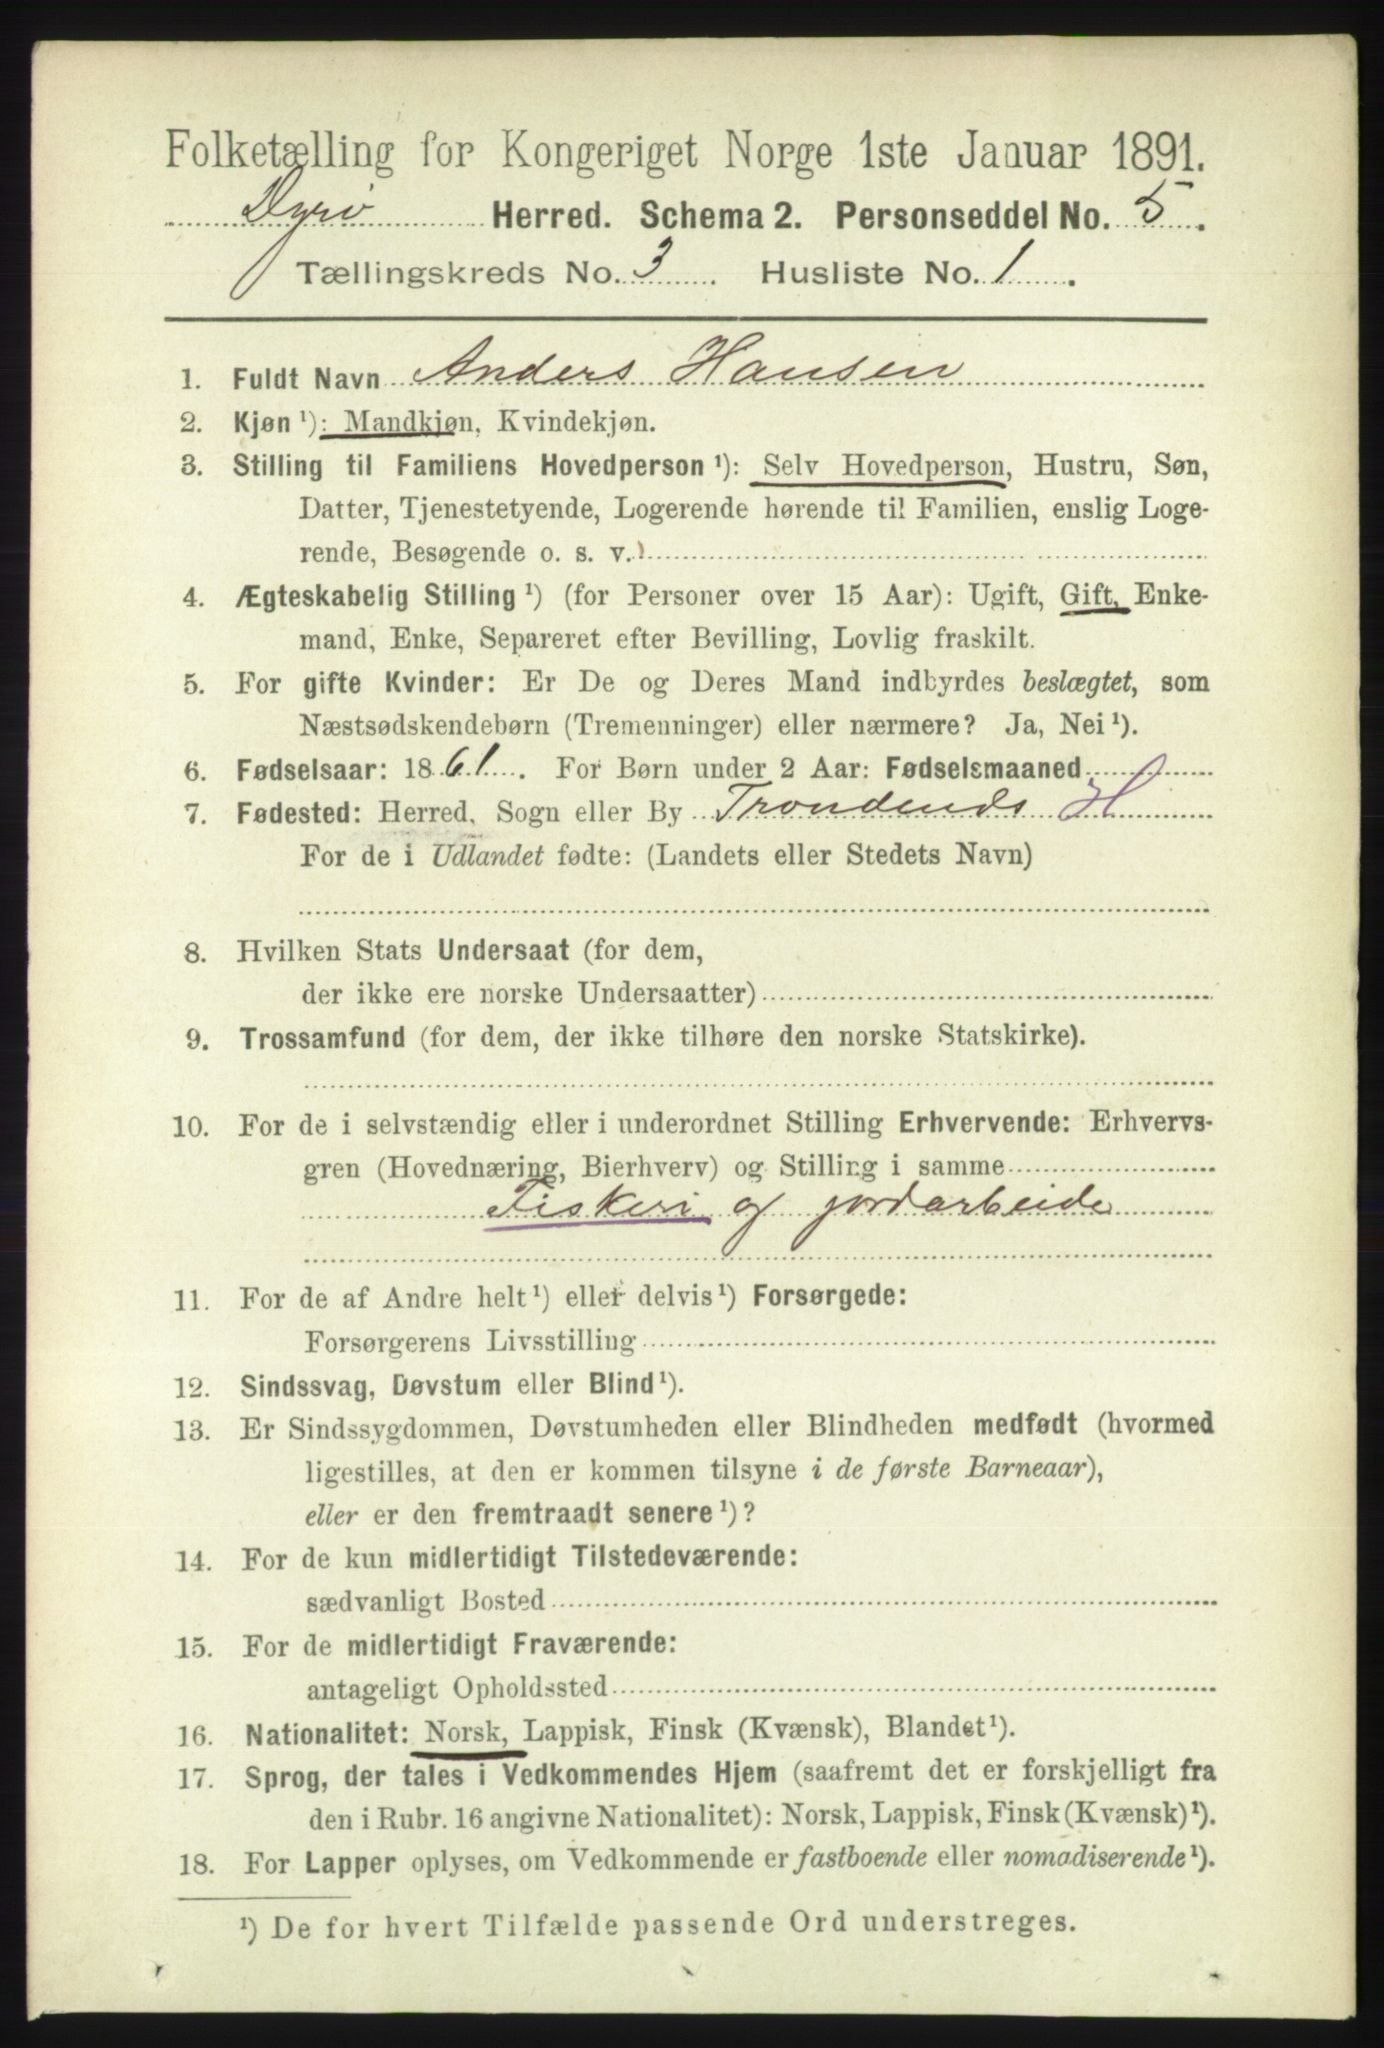 Folketælling for Kongeriget Norge 1ste Januar 1891.
Dyrø Herred. Schema 2. Personseddel No. 5.
Tællingskreds No. 3. Husliste No. 1.
1. Fuldt Navn Anders Hansen
2. Kjøn ¹): Mandkjøn, Kvindekjøn.
3. Stilling til Familiens Hovedperson ¹): Selv Hovedperson, Hustru, Søn,
Datter, Tjenestetyende, Logerende hørende til Familien, enslig Loge-
rende, Besøgende o. s. v.
4. Ægteskabelig Stilling ¹) (for Personer over 15 Aar): Ugift, Gift, Enke-
mand, Enke, Separeret efter Bevilling, Lovlig fraskilt.
5. For gifte Kvinder: Er De og Deres Mand indbyrdes beslægtet, som
Næstsødskendebørn (Tremenninger) eller nærmere? Ja, Nei ¹).
6. Fødselsaar: 1861. For Børn under 2 Aar: Fødselsmaaned
7. Fødested: Herred, Sogn eller By Trondends H
For de i Udlandet fødte: (Landets eller Stedets Navn)
8. Hvilken Stats Undersaat (for dem,
der ikke ere norske Undersaatter)
9. Trossamfund (for dem, der ikke tilhøre den norske Statskirke).
10. For de i selvstændig eller i underordnet Stilling Erhvervende: Erhvervs-
gren (Hovednæring, Bierhverv) og Stilling i samme
Fiskeri og jordarbeide
11. For de af Andre helt ¹) eller delvis ¹) Forsørgede:
Forsørgerens Livsstilling
12. Sindssvag, Døvstum eller Blind ¹).
13. Er Sindssygdommen, Døvstumheden eller Blindheden medfødt (hvormed
ligestilles, at den er kommen tilsyne i de første Barneaar),
eller er den fremtraadt senere ¹)?
14. For de kun midlertidigt Tilstedeværende:
sædvanligt Bosted
15. For de midlertidigt Fraværende:
antageligt Opholdssted
16. Nationalitet: Norsk, Lappisk, Finsk (Kvænsk), Blandet ¹).
17. Sprog, der tales i Vedkommendes Hjem (saafremt det er forskjelligt fra
den i Rubr. 16 angivne Nationalitet): Norsk, Lappisk, Finsk (Kvænsk) ¹).
18. For Lapper oplyses, om Vedkommende er fastboende eller nomadiserende ¹).
¹) De for hvert Tilfælde passende Ord understreges.